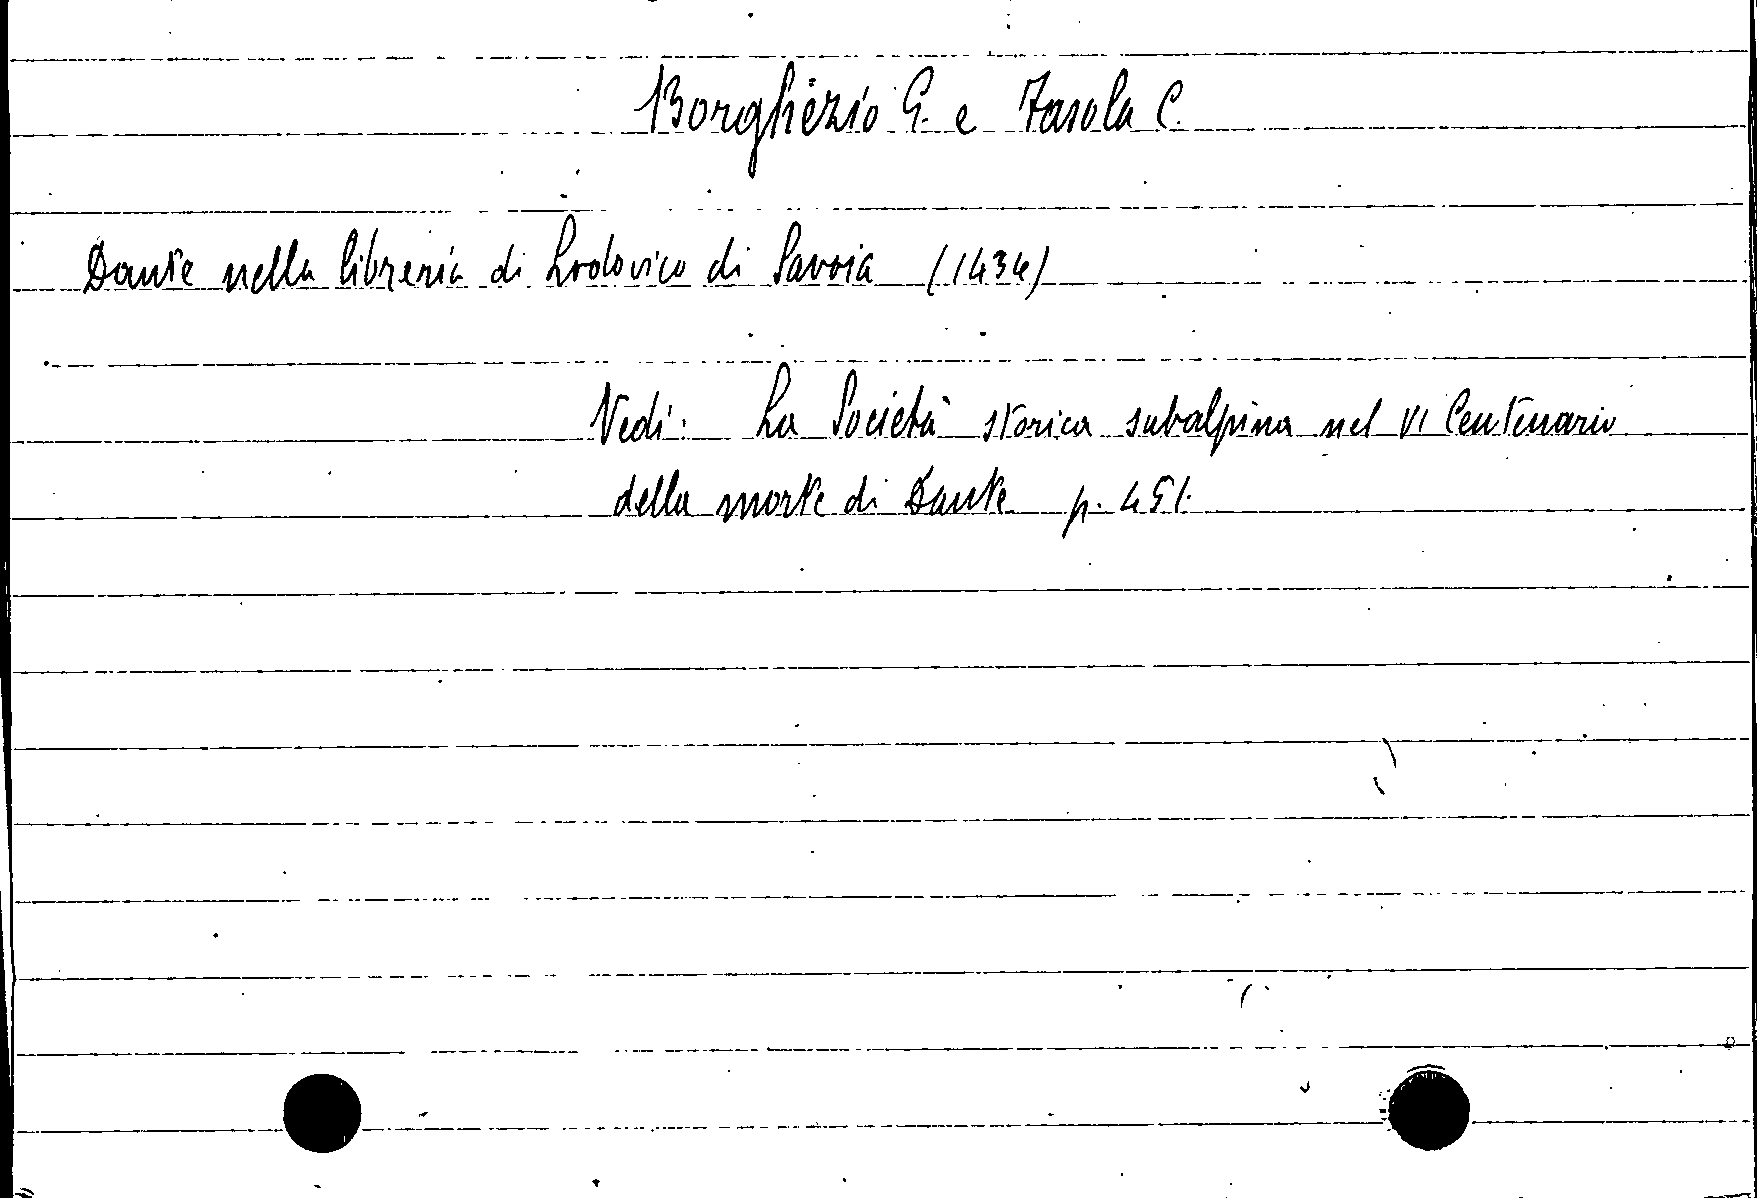 Borghezio G. e Fasola C.
Dante nella libreria di Lodovico di Savoia (1434)
Vedi: La Società storica subalpina nel VI Centenario
della morte di Dante p. 451.